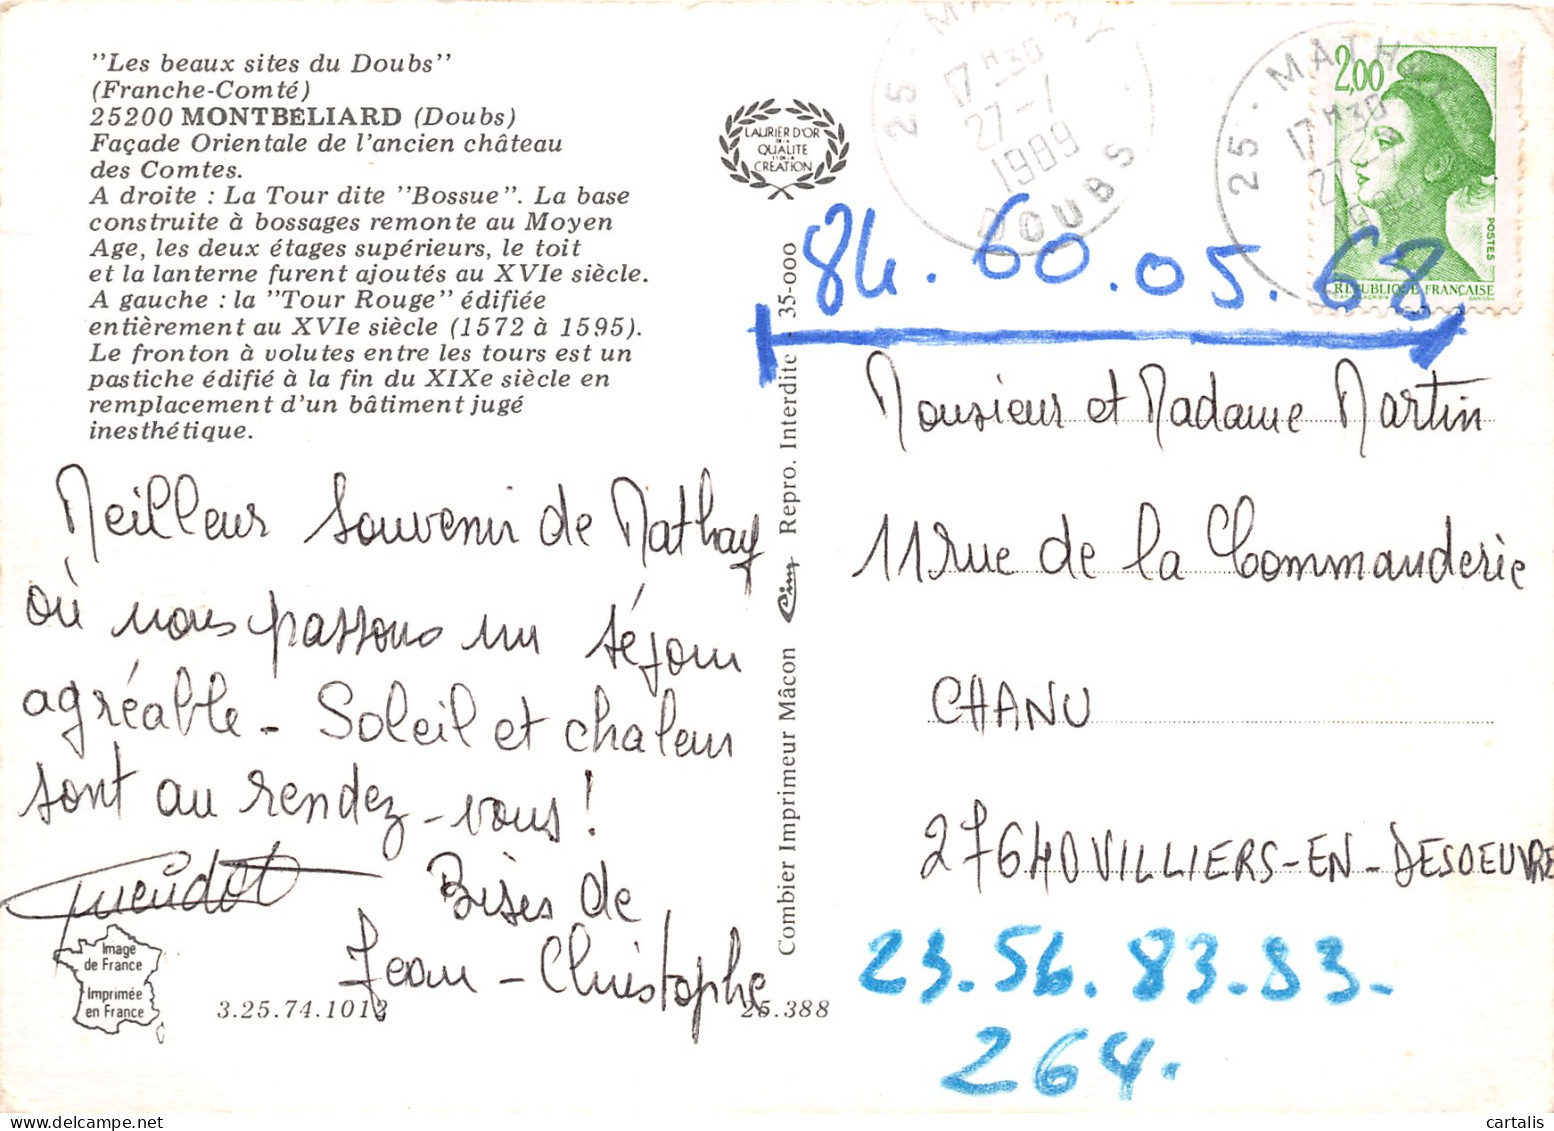 "Les beaux sites du Doubs"
(Franche-Comté)
25200 MONTBÉLIARD (Doubs)
Façade Orientale de l'ancien château
des Comtes.
A droite : La Tour dite "Bossue". La base
construite à bossages remonte au Moyen
Age, les deux étages supérieurs, le toit
et la lanterne furent ajoutés au XVIe siècle.
A gauche : la "Tour Rouge" édifiée
entièrement au XVIe siècle (1572 à 1595).
Le fronton à volutes entre les tours est un
pastiche édifié à la fin du XIXe siècle en
remplacement d'un bâtiment jugé
inesthétique.
LAURIER D'OR
DE LA
QUALITE
ET DE LA
CREATION
25 · MATHAY
17 H 30
27-7
1989
DOUBS
25 · MATHAY
17 H 30
27-7
1989
2,00
POSTES
RÉPUBLIQUE FRANÇAISE
84.60.05.68.
Meilleur souvenir de Mathay
où nous passons un séjour
agréable - Soleil et chaleur
sont au rendez-vous !
Gueudot
Bises de
Jean-Christophe
Image
de France
Imprimée
en France
3.25.74.1013
25.388
Combier Imprimeur Mâcon Cim Repro. Interdite 35-000
Monsieur et Madame Martin
11 rue de la Commanderie
CHANU
27640 VILLIERS-EN-DESOEUVRE
23.56.83.83.
264.